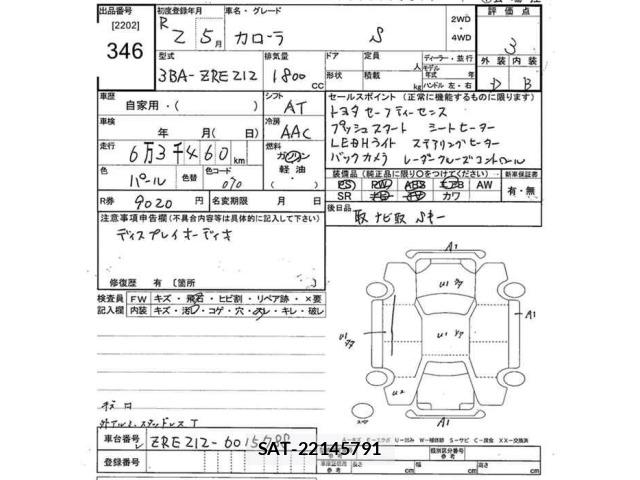 出品番号 初度登録年月 車名・グレード 評価点
[2202] R2年 5月 カローラ S 2WD・4WD 3
346
型式 排気量 ドア 定員 ディーラー・並行 外装 内装
3BA-ZRE212 1800cc 形状 積載 人 kg モデル年式 年式 ハンドル 左・右 D B
車歴 シフト セールスポイント (正常に機能するものに限ります)
自家用・( ) AT トヨタセーフティーセンス
車検 冷房 プッシュスタート シートヒーター
年 月(日) AAC LEDライト ステアリングヒーター
走行 燃料 バックカメラ レーダークルーズコントロール
6万3千460km ガソリン 軽油・( )
色 色替 色コード 装備品 (純正品に限り○をつけてください) 新車保証書
パール 070 PS PW ABS エアB AW 有・無
R券 9020円 名変期限 月 日 SR カワ
注意事項申告欄(不具合内容等は具体的に記入して下さい) 後日品
ディスプレイオーディオ 取 ナビ取 Sキー
修復歴 有 [箇所 ]
A1
U1
検査員 FW キズ・飛石・ヒビ割・リペア跡・×要
記入欄 内装 キズ・汚レ・コゲ・穴・スレ・キレ・破レ
A1
U2
A1
外アルミ、スタッドレスT
車台番号 ZRE212-6015700
SAT-22145791
登録番号 長さ cm 幅 cm 高さ cm